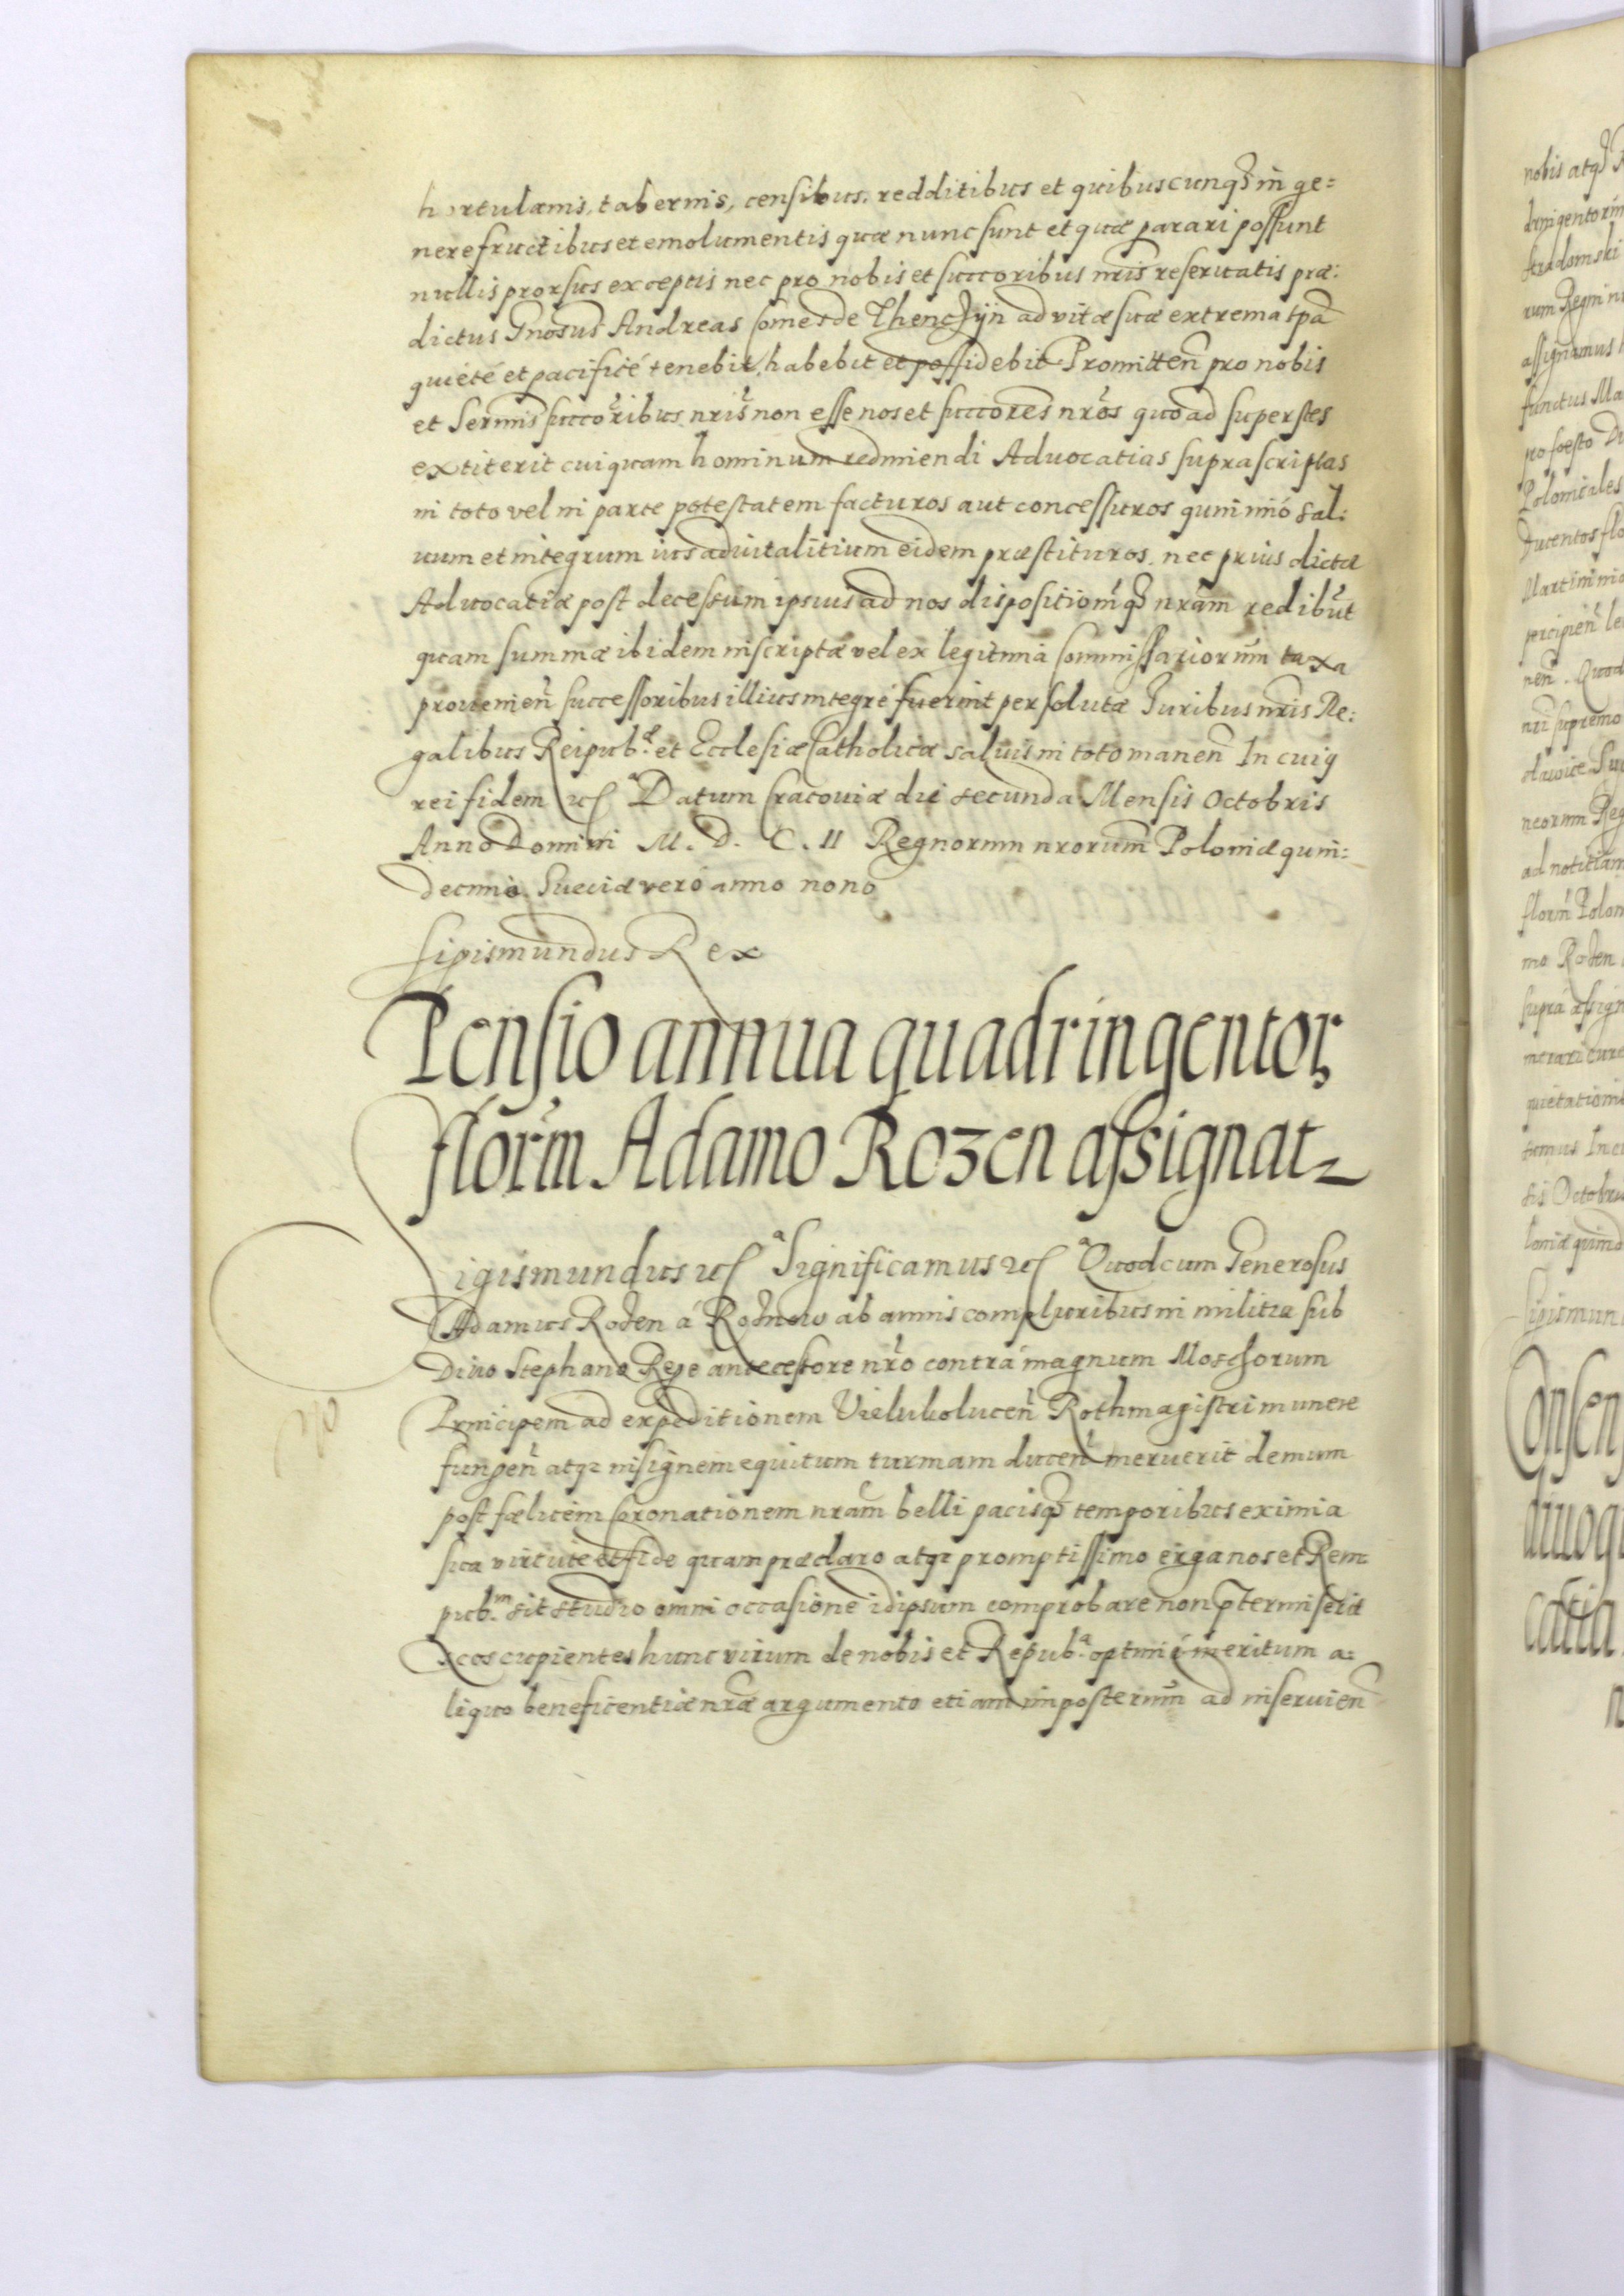 hortulanis, tabernis, censibus, redditibus et quibuscunq3 in ge:
nere fructibus et emolumentis quæ nunc sunt et quæ parari possunt
nullis prorsus exceptis nec pro nobis et succoribus nris reseruatis præ:
dictus Gnosus Andreas Comes de Thenczijn ad vitæ suæ extrema tpa
quieté et pacificé tenebit, habebit et possidebit Promitten pro nobis
et Sermis succoribus nris non esse nos et succores nros quoad superstes
extiterit cuiquam hominum redimendi Aduocatias suprascriptas
in toto vel in parte potestatem facturos aut concessuros quinimó sal:
uum et integrum ius aduitalitium eidem præstituros, nec prius dictæ
Aduocatiæ post decessum ipsius ad nos dispositiomq3 nram redibut
quam summæ ibidem inscriptæ vel ex legitima Commissariorum taxa
prouenien successoribus illius integré fuerint persolutæ Iuribus nris Re:
galibus Reipub.æ et Ecclesiæ Catholicæ saluis in toto manen In cuig
rei fidem etc. Datum Cracouiæ die secunda Mensis Octobris
Anno Domini M. D. C. II Regnorum nrorum Poloniæ quin:
decimo. Sueciæ veró anno nono
Sigismundus Rex
Pensio annua quadringentor
florm Adamo Rozen assignat
Sigismundus etc.a Significamus etc.a Quod cum Generosus
Adamus Rozen á Roznow ab annis compluribus in militia sub
Diuo Stephano Rege antecessore nro contrá magnum Moschorum
Principem ad expeditionem Vielukolucen Rothmagistri munere
fungen atq3 insignem equitum turmam ducen meruerit demum
post fælicem Coronationem nram belli pacisq3 temporibus eximia
sua virtute et fide quam præclaro atq3 promptissimo erga nos et Rem
pub.m sit studio omni occasione idipsum comprobare non ptermiserit
Nos cupientes hunc virum de nobis et Repub.a optimé meritum a:
liquo beneficentiæ nræ argumento etiam imposterum ad inseruien